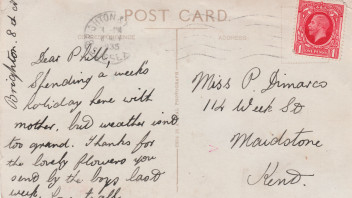 POST CARD
Brighton. 8th
Dear Phill,
Spending a weeks
holiday here with
mother, but weather isnd
too grand. Thanks for
the lovely flowers you
send by the boys last
week.
Miss P Dimarco
114 Week St
Maidstone
Kent.